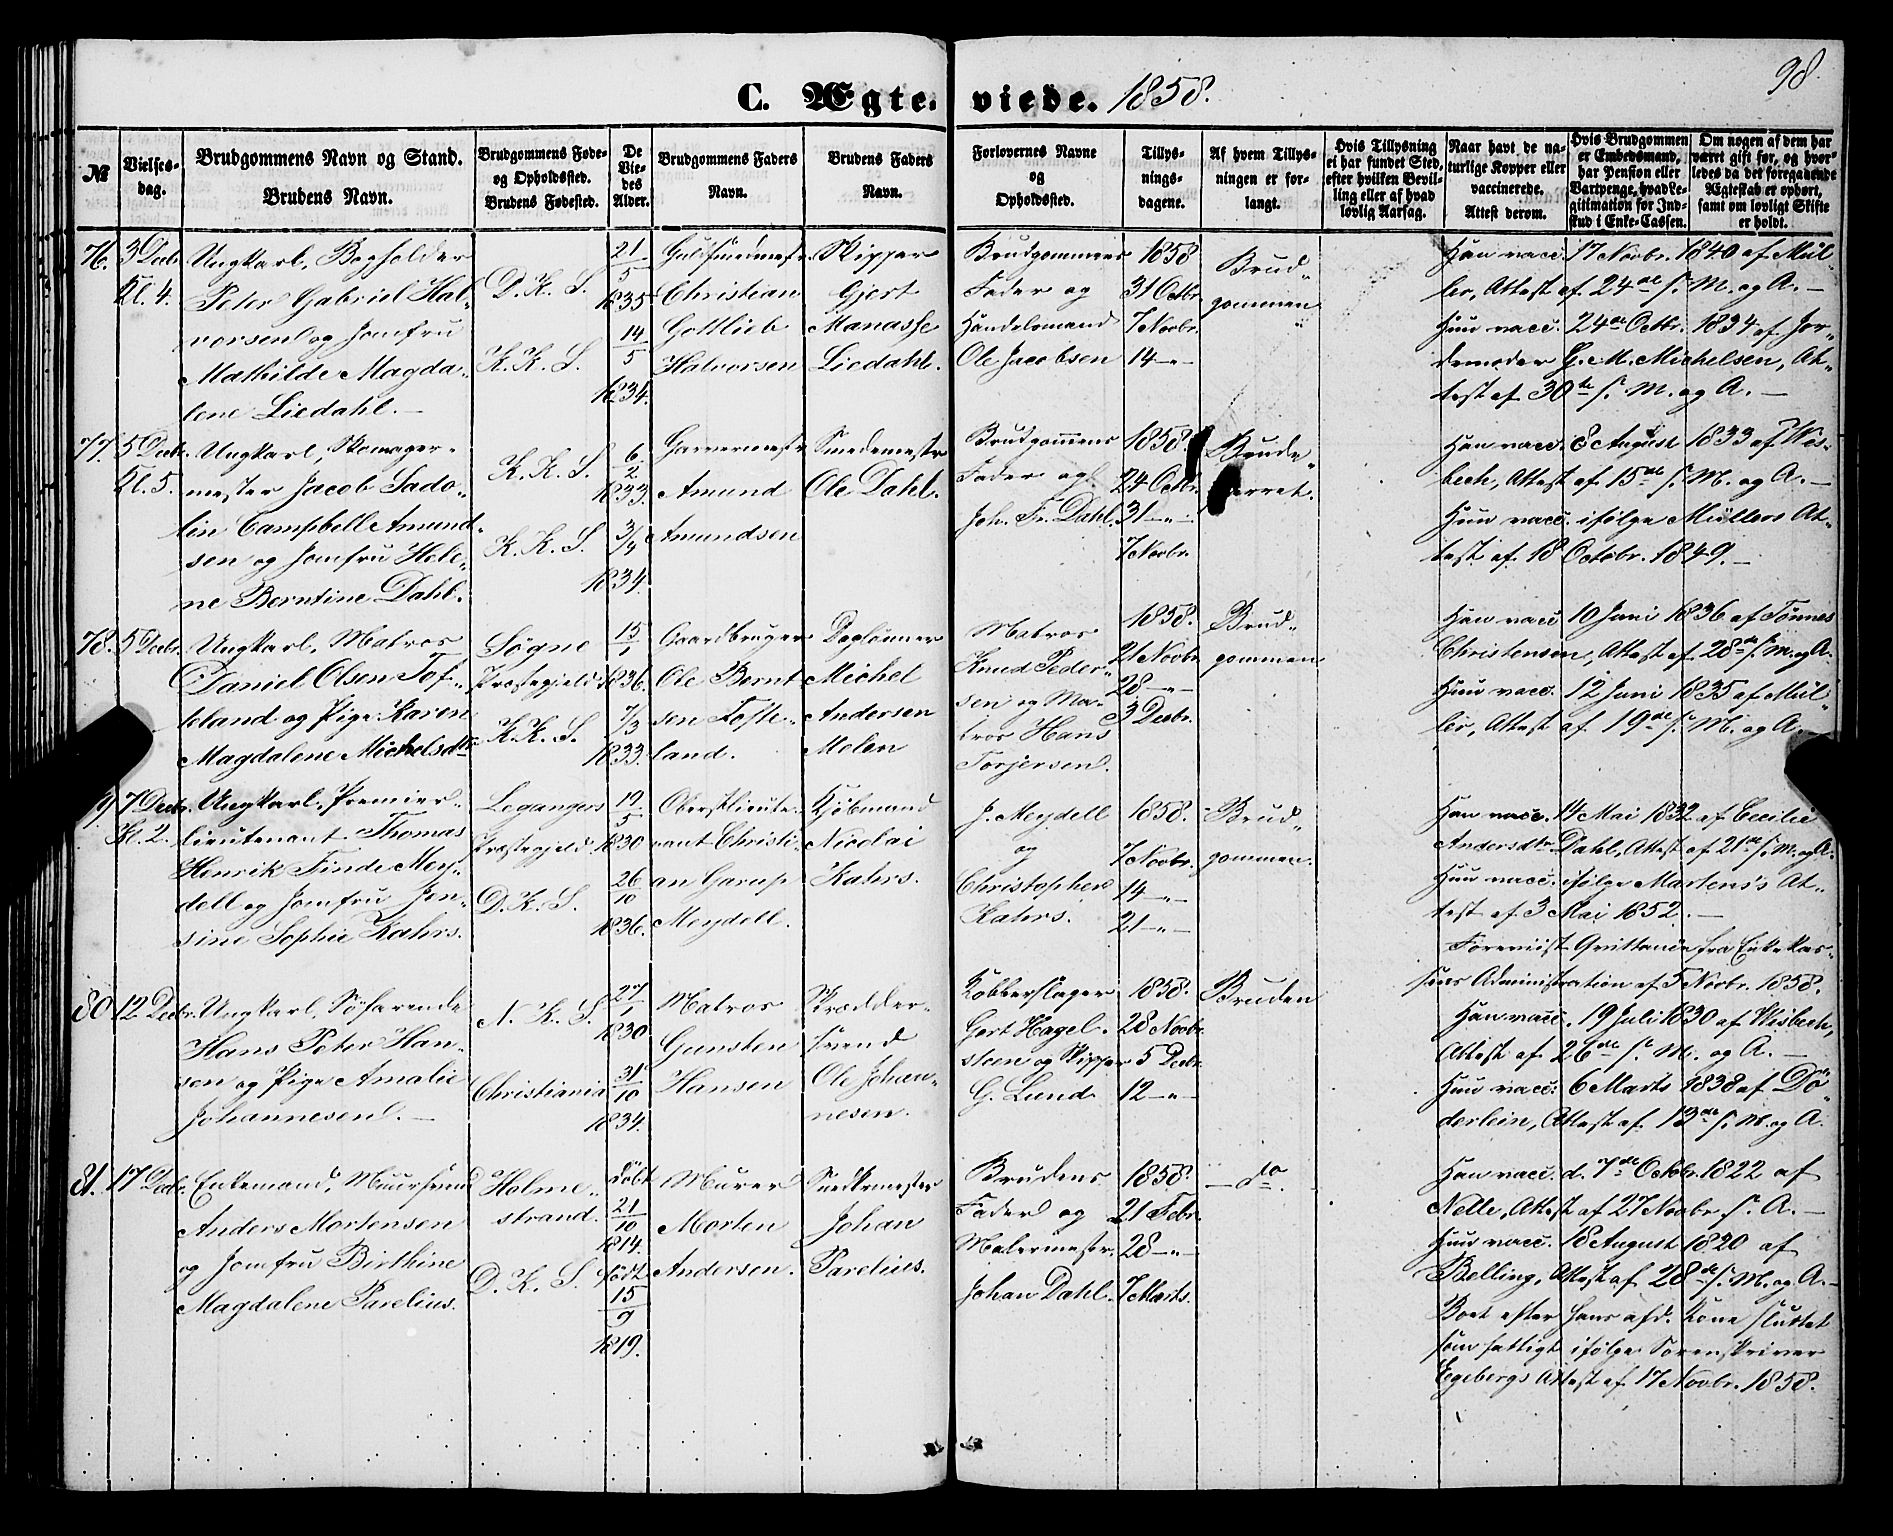 98.
C. Ægte-viede. 1858.
No
Vielses-
dag.
Brudgommens Navn og Stand.
Brudens Navn.
Brudgommens Føde-
og Opholdssted.
Brudens Fødested.
De
Vie-
des
Alder.
Brudgommens Faders
Navn.
Brudens Faders
Navn.
Forlovernes Navne
og
Opholdssted.
Tillys-
nings-
dagene.
Af hvem Tillys-
ningen er for-
langt.
Hvis Tillysning
ei har fundet Sted,
efter hvilken Bevil-
ling eller af hvad
lovlig Aarsag.
Naar havt de na-
turlige Kopper eller
vaccinerede.
Attest derom.
Hvis Brudgommen
er Embedsmand,
har Pension eller
Vartpenge, hvad Le-
gitimation for Ind-
skud i Enke-Cassen.
Om nogen af dem har
været gift før, og hvor-
ledes da det foregaaende
Ægteskab er ophørt,
samt om lovligt Skifte
er holdt.
76.
3 Decbr.
Kl. 4.
Ungkarl, Bogholder
Peter Gabriel Hal-
vorsen og Jomfru
Mathilde Magda-
lene Liedahl. —
D. K. S.
K. K. S.
21/5
1835
14/5
1834.
Guldsmedmestr.
Christian
Gottlieb
Halvorsen
Skipper
Gjert
Manasse
Liedahl.
Brudgommens
Fader og
Handelsmand
Ole Jacobsen
1858
31 Octbr.
7 Novbr.
14 —"—
Brud-
gommen
Han vacc. 17 Novbr. 1840 af Mül-
ler, Attest af 24de s. M. og A. —
Hun vacc. 24de Octbr. 1834 af Jor-
demoder G. M. Michelsen, At-
test af 30te s. M. og A. —
77.
5 Decbr.
Kl. 5.
Ungkarl, Skomager-
mester Jacob Sado-
lin Campbell Amund-
sen og Jomfru Hele-
ne Berntine Dahl.
K. K. S.
K. K. S.
6/2
1833.
3/4
1834.
Garvermestr
Amund
Amundsen
Smedemestr
Ole Dahl.
Brudgommens
Fader og
Joh. Fr. Dahl.
1858.
24 Octbr.
31 —"—
7 Novbr.
Brude-
parret.
Han vacc. 8 August 1833 af Wis-
bech, Attest af 15de s. M. og A. —
Hun vacc. ifølge Müllers At-
test af 18 Octobr. 1849. —
78.
5 Decbr.
Ungkarl, Matros
Daniel Olsen Tof-
teland og Pige Karen
Magdalene Michelsdtr
Søgne
Præstegjeld
K. K. S.
15/1
1836.
7/3
1833.
Gaardbruger
Ole Bernt-
sen Tofte-
land.
Daglønner
Michel
Andersen
Molen
Matros
Knud Peder-
sen og Ma-
tros Hans
Torjersen.
1858.
21 Novbr.
28 —"—
3 Decbr.
Brud-
gommen
Han vacc. 10 Juni 1836 af Tønnes
Christensen, Attest af 28de s. M. og A.
Hun vacc. 12 Juni 1835 af Mül-
ler, Attest af 19de s. M. og A. —
9.
7 Decbr.
Kl. 2.
Ungkarl, Premier-
lieutenant Thomas
Henrik Finde Mey-
dell og Jomfru Jen-
sine Sophie Kahrs.
Leganger
Præstegjeld
D. K. S.
19/5
1830
26/10
1836.
Oberstlieute-
nant Christi-
an Garup
Meydell.
Kjøbmand
Nicolai
Kahrs.
J. Meydell
og
Christopher
Kahrs.
1858.
7 Novbr.
14 —"—
21 —"—
Brud-
gommen.
Han vacc. 14 Mai 1832 af Cecilie
Andersdtr Dahl, Attest af 21de s. M. og A.
Hun vacc. ifølge Martens's At-
test af 3 Mai 1852. —
Forevist Qvittance fra Enkekas-
sens Administration af 5 Novbr. 1858.
80.
12 Decbr.
Ungkarl, Søfarende
Hans Peter Han-
sen og Pige Amalie
Johannesen. —
N. K. S.
Christiania
27/1
1830.
31/10
1834.
Matros
Gunsten
Hansen
Skrædder-
svend
Ole Johan-
nesen.
Kobberslager
Gert Hagel-
steen og Skipper
G. Lund
1858.
28 Novbr.
5 Decbr.
12 —"—
Bruden
Han vacc. 19 Juli 1830 af Wisbech,
Attest af 26de s. M. og A. —
Hun vacc. 6 Marts 1838 af Dö-
derlein, Attest af 13de s. M. og A.
81.
17 Decbr.
Enkemand, Muursvend
Anders Mortensen
og Jomfru Birthine
Magdalene Parelius.
Holme-
strand.
D. K. S.
døbt
21/10
1814.
født
15/9
1819.
Murer
Morten
Andersen.
Snedkermester
Johan
Parelius.
Brudens
Fader og
Malermestr.
Johan Dahl.
1858.
21 Febr.
28 —"—
7 Marts.
— do.
Han vacc. d. 7de Octobr. 1822 af
Nelle, Attest af 27 Novbr. s. A. —
Hun vacc. 18 August 1820 af
Belling, Attest af 28de s. M. og A. —
Boet efter hans afd. Kone sluttet
som fattigt ifølge Sorenskriver
Egebergs Attest af 17 Novbr. 1858.